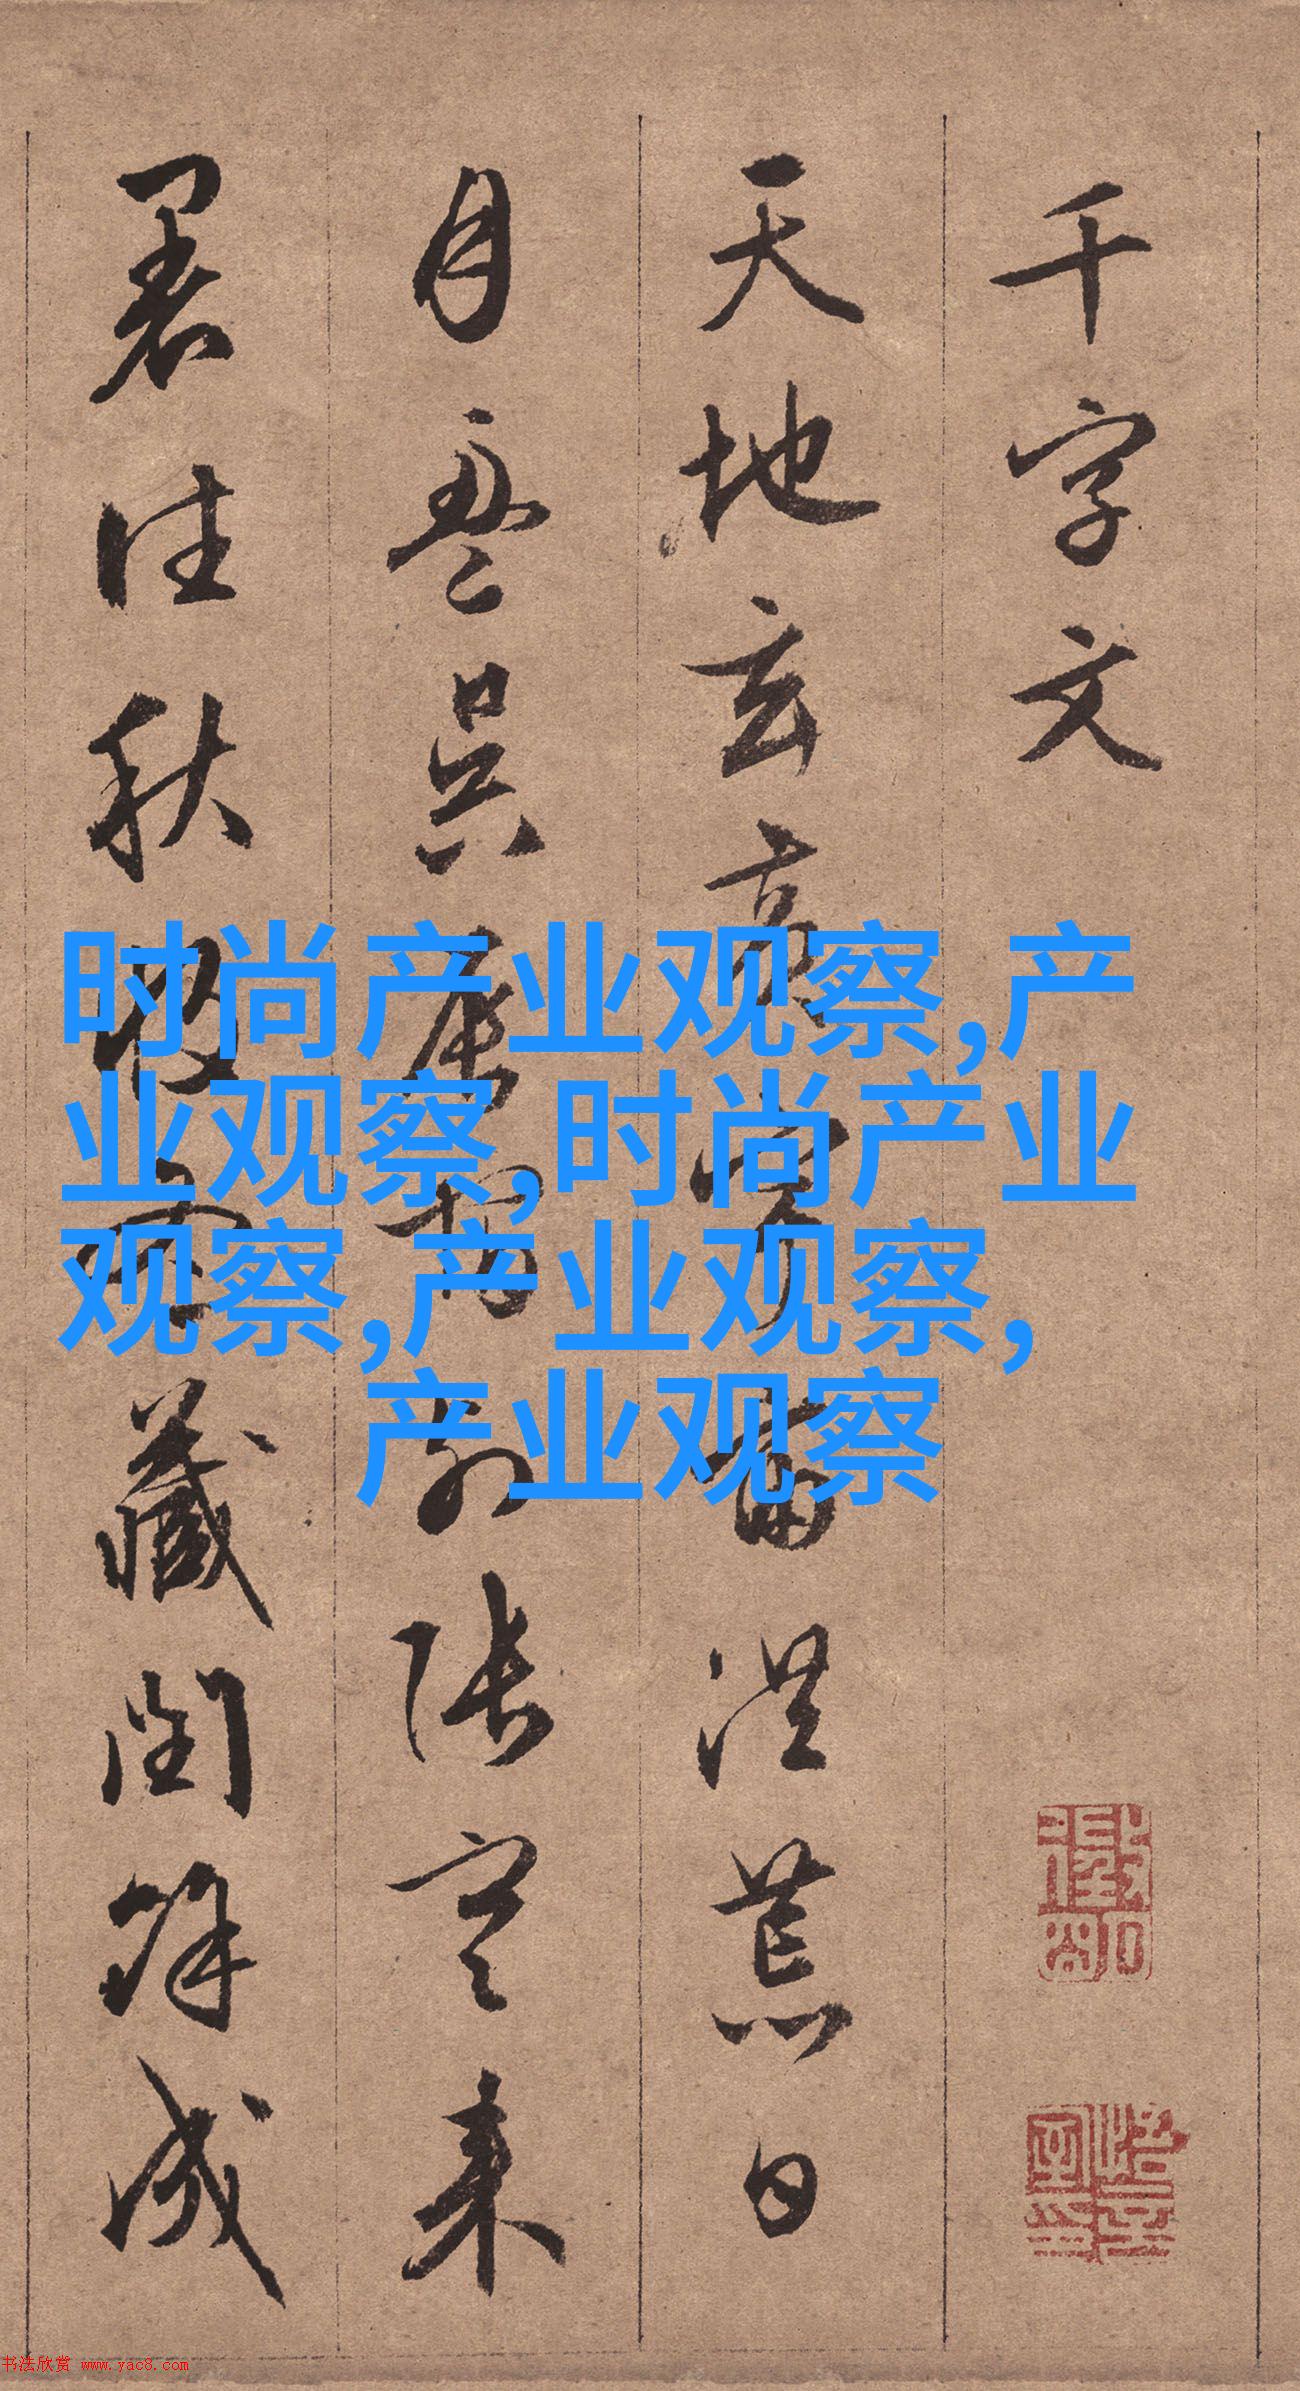 千字文
天地玄黄宇宙洪荒日
月盈昃辰宿列張寒来
暑往秋收冬藏閏餘成
时尚产业观察,产
业观察,时尚产业
观察,产业观察,
产业观察
书法欣赏 www.yac8.com